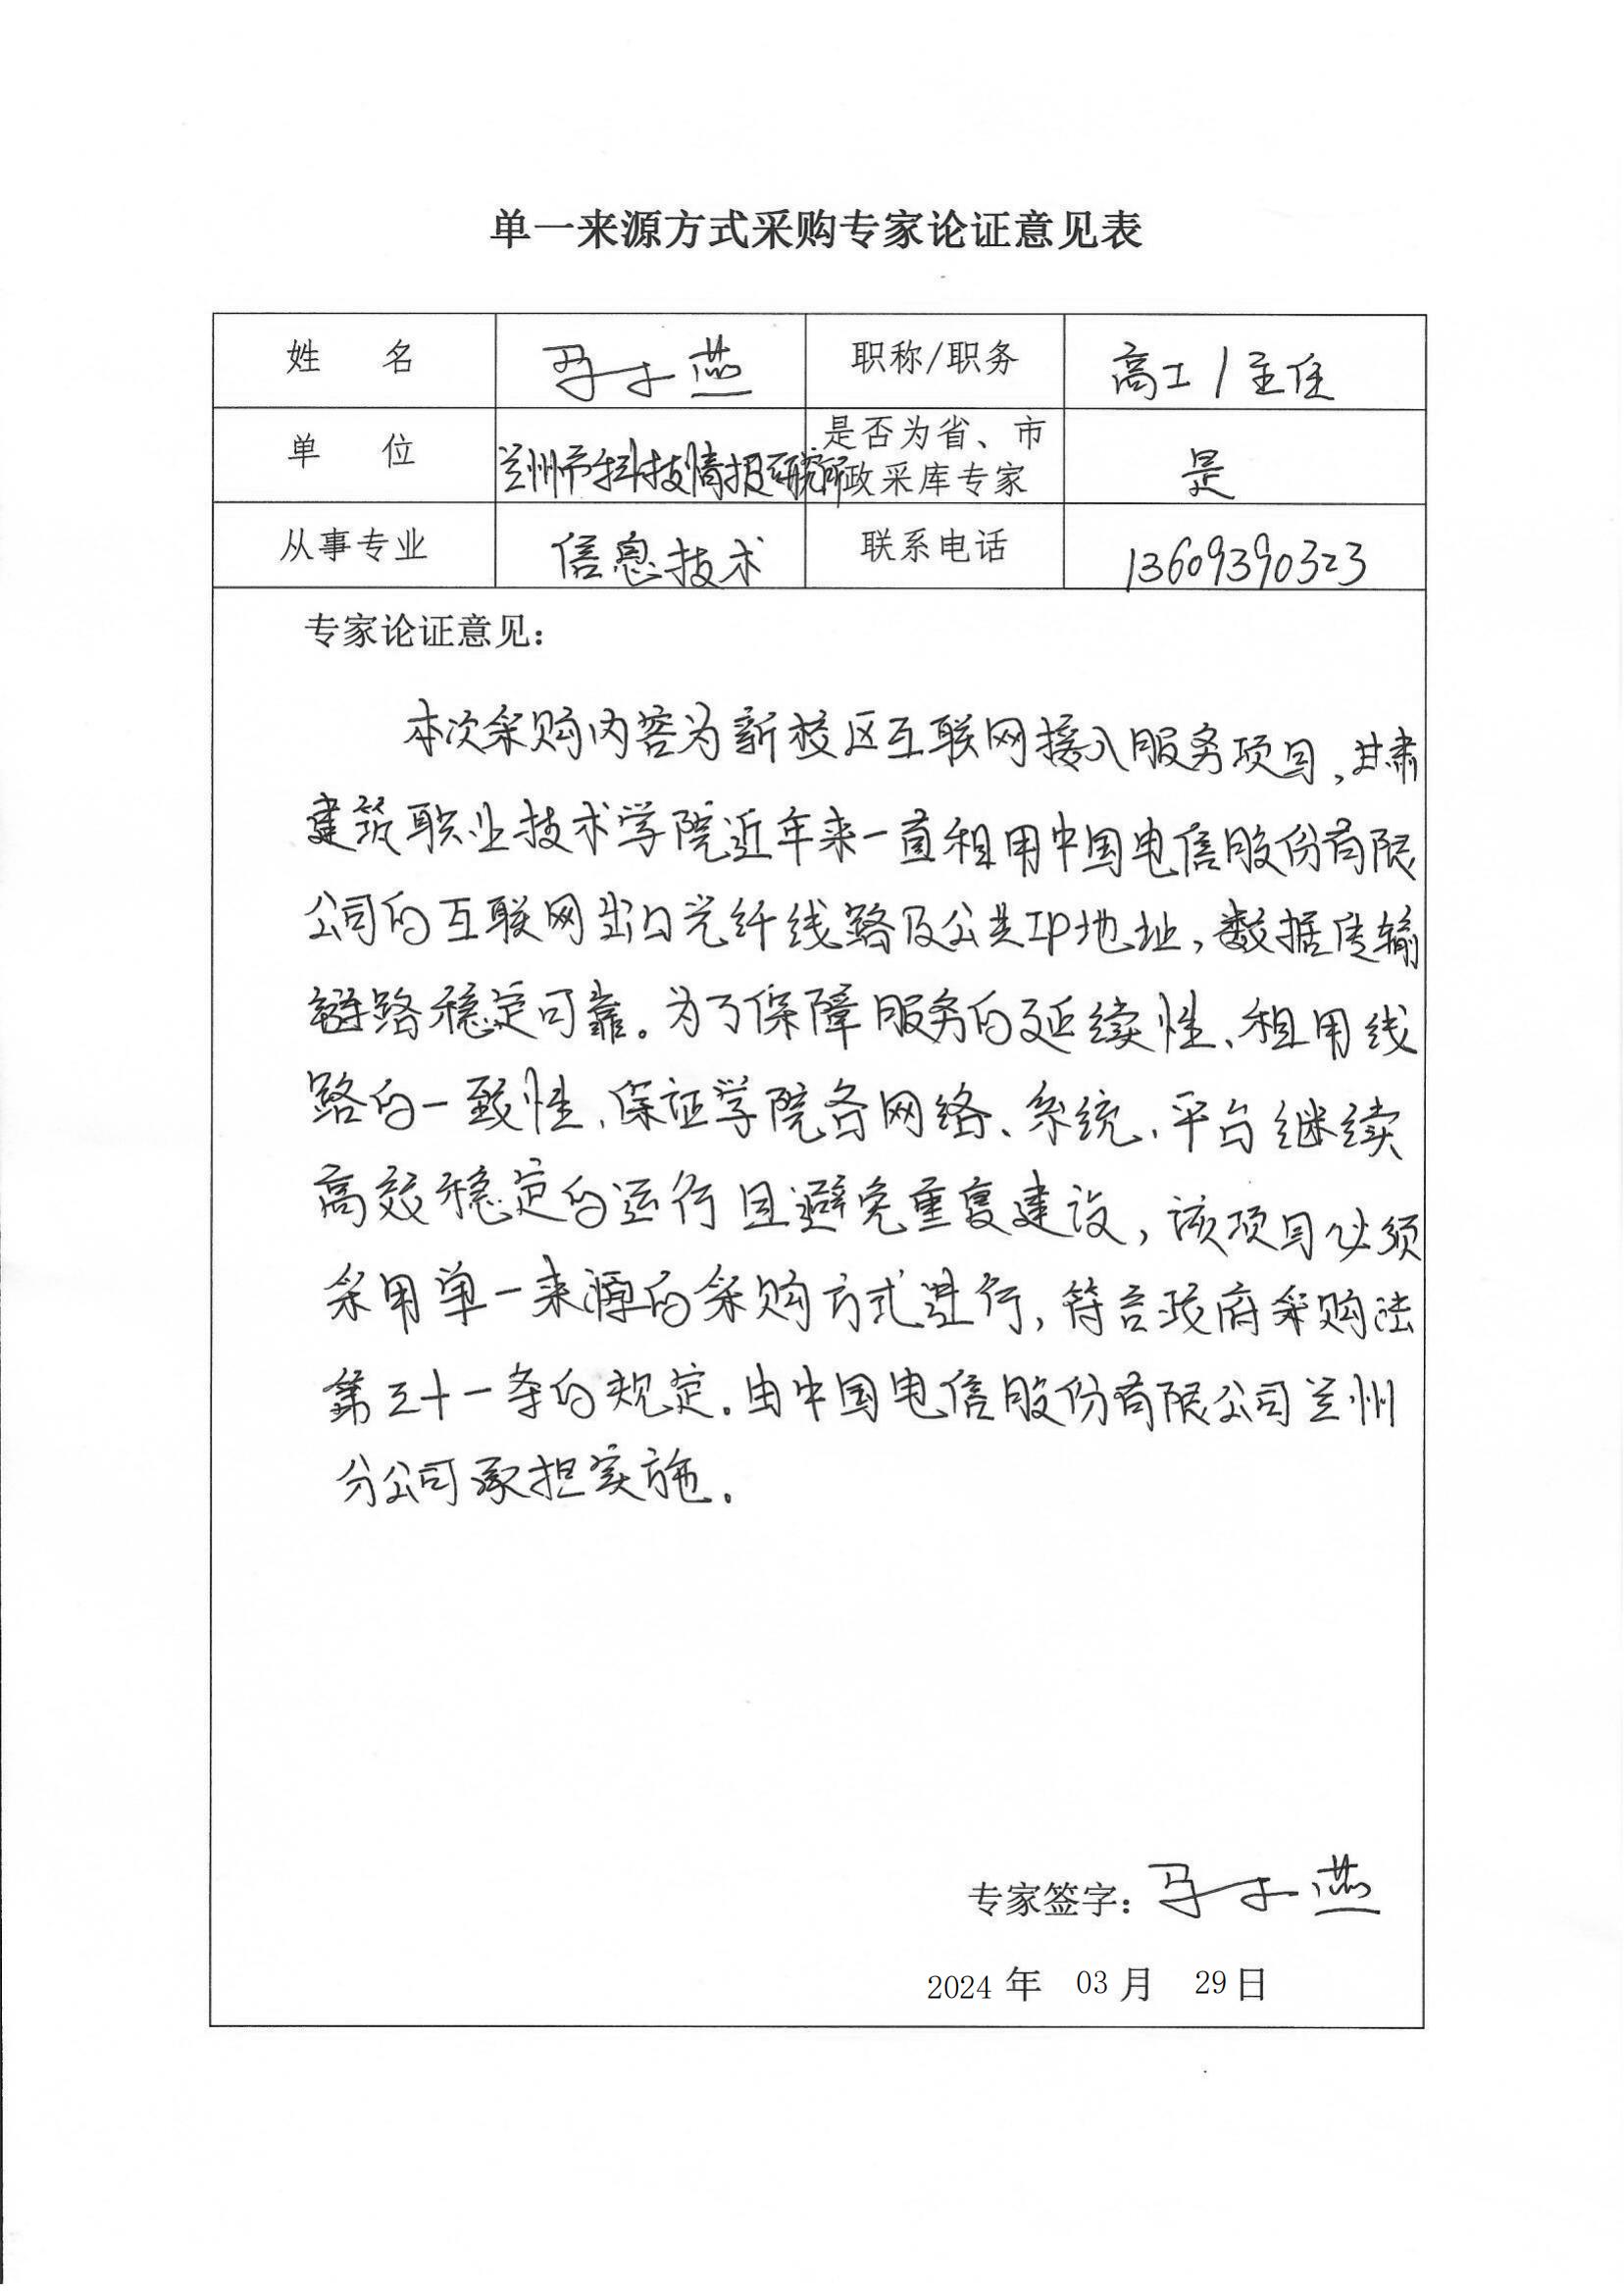 单一来源方式采购专家论证意见表
姓 名 马 燕 职称/职务 高工/主任
单 位 兰州市科技情报研究所 是否为省、市政采库专家 是
从事专业 信息技术 联系电话 13609390323
专家论证意见：
本次采购内容为新校区互联网接入服务项目，甘肃
建筑职业技术学院近年来一直租用中国电信股份有限
公司的互联网出口光纤线路及公共IP地址，数据传输
链路稳定可靠。为了保障服务的延续性、租用线
路的一致性、保证学院各网络、系统、平台继续
高效稳定的运行且避免重复建设，该项目必须
采用单一来源的采购方式进行，符合政府采购法
第三十一条的规定。由中国电信股份有限公司兰州
分公司承担实施。
专家签字：马 燕
2024 年 03 月 29 日